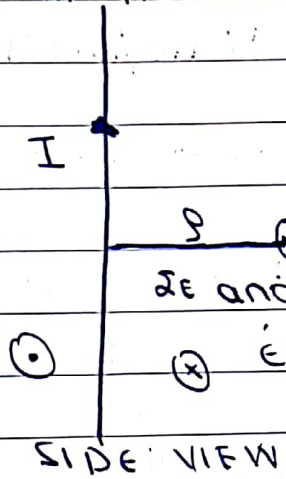 I
ρ
IE and
Ė
SIDE VIEW